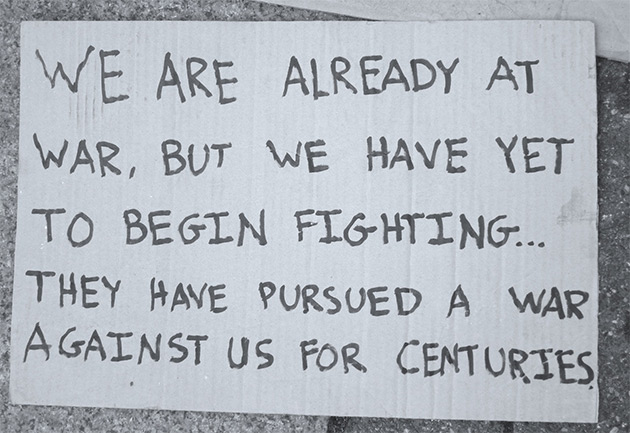 WE ARE ALREADY AT
WAR, BUT WE HAVE YET
TO BEGIN FIGHTING...
THEY HAVE PURSUED A WAR
AGAINST US FOR CENTURIES